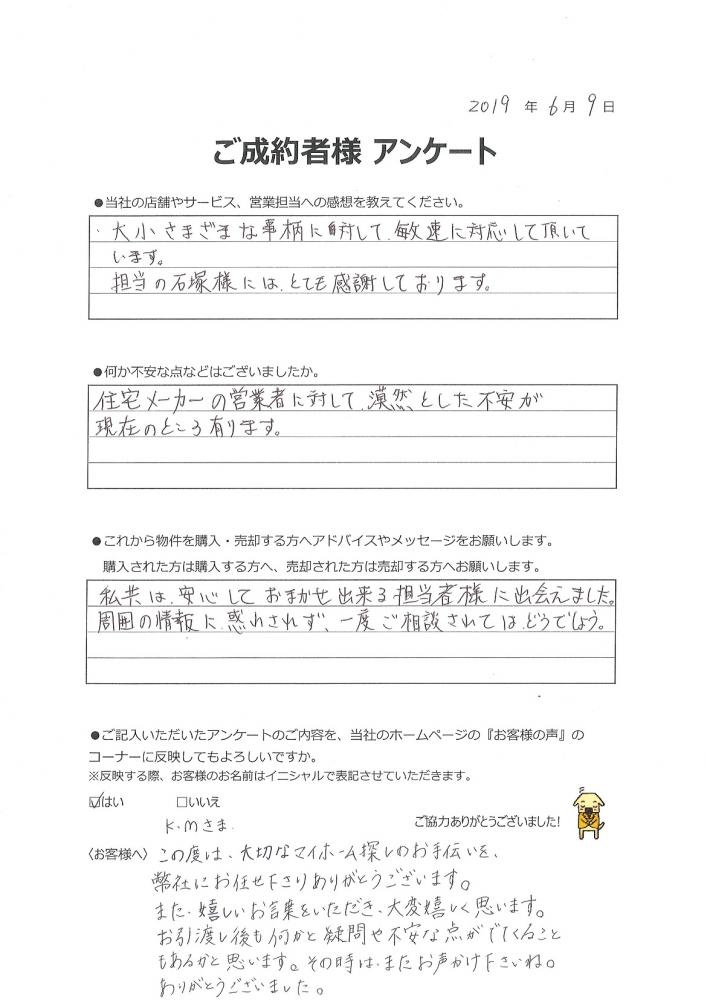 2019 年 6月 9日
ご成約者様 アンケート
●当社の店舗やサービス、営業担当への感想を教えてください。
・大小さまざまな事柄に対して、敏速に対応して頂いて
います。
担当の石塚様には、とても感謝しております。
●何か不安な点などはございましたか。
住宅メーカーの営業者に対して、漠然とした不安が
現在のところ有ります。
●これから物件を購入・売却する方へアドバイスやメッセージをお願いします。
購入された方は購入する方へ、売却された方は売却する方へお願いします。
私共は、安心しておまかせ出来る担当者様に出会えました。
周囲の情報に、惑わされず、一度ご相談されてはどうでしょう。
●ご記入いただいたアンケートのご内容を、当社のホームページの『お客様の声』の
コーナーに反映してもよろしいですか。
※反映する際、お客様のお名前はイニシャルで表記させていただきます。
☑はい □いいえ
K.Mさま
ご協力ありがとうございました!
〈お客様へ〉この度は、大切なマイホーム探しのお手伝いを、
弊社にお任せ下さりありがとうございます。
また、嬉しいお言葉をいただき、大変嬉しく思います。
お引渡し後も何かと疑問や不安な点がでてくること
もあるかと思います。その時は、またお声かけ下さいね。
ありがとうございました。